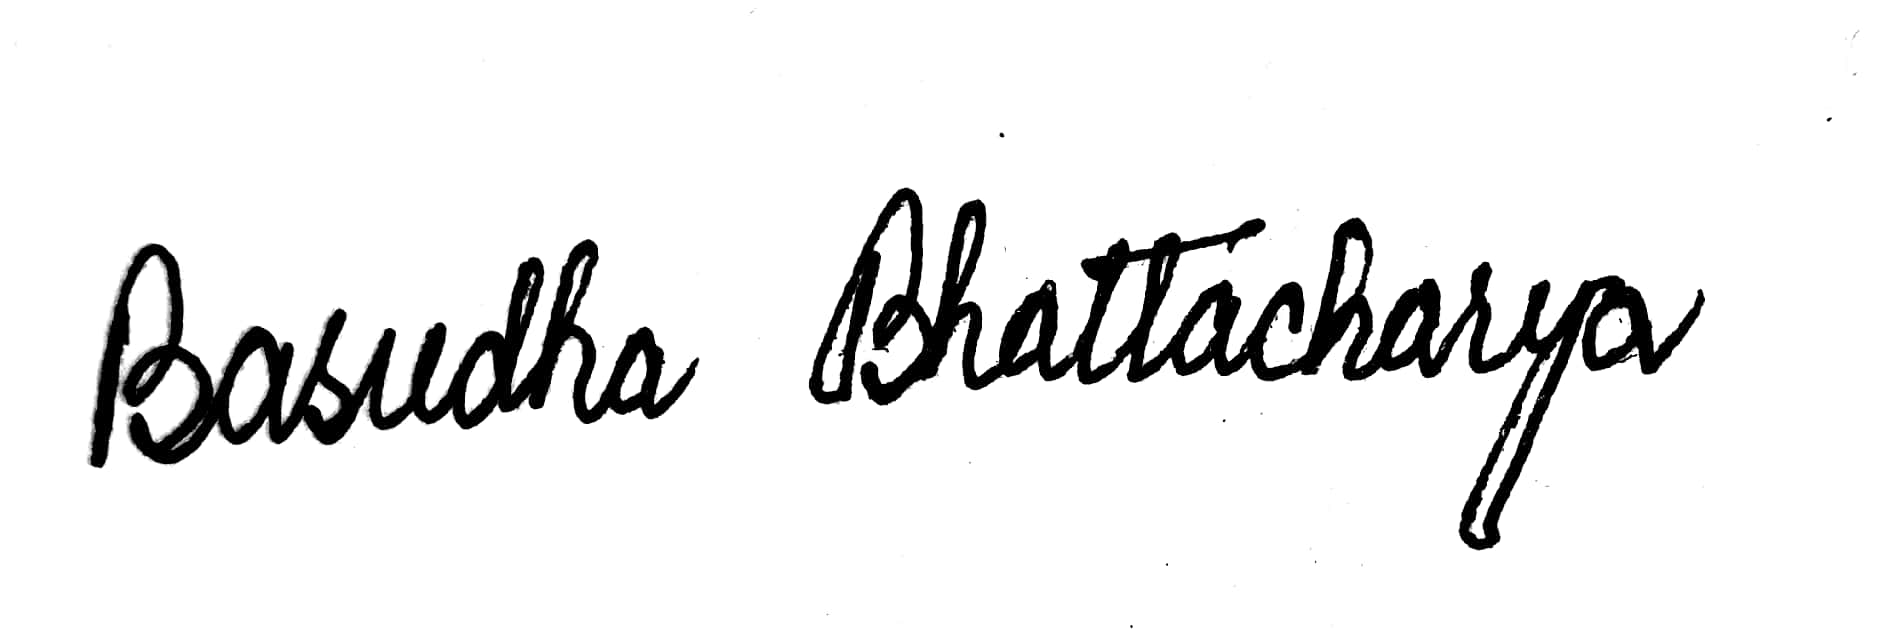 Basudha Bhattacharya